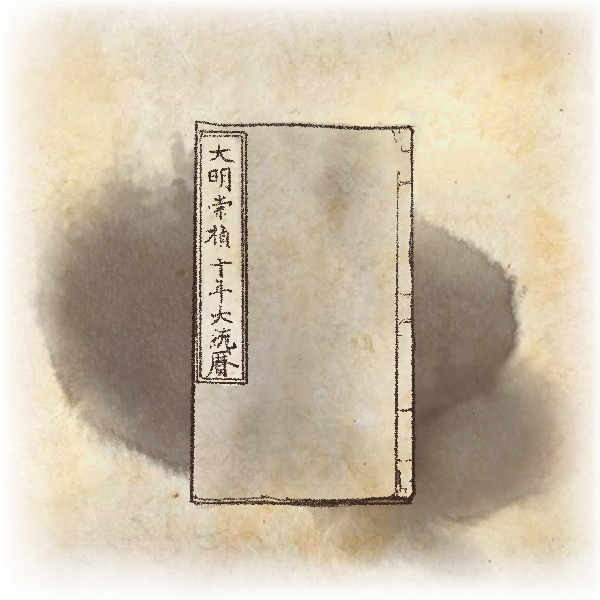 大明崇禎十年大統曆